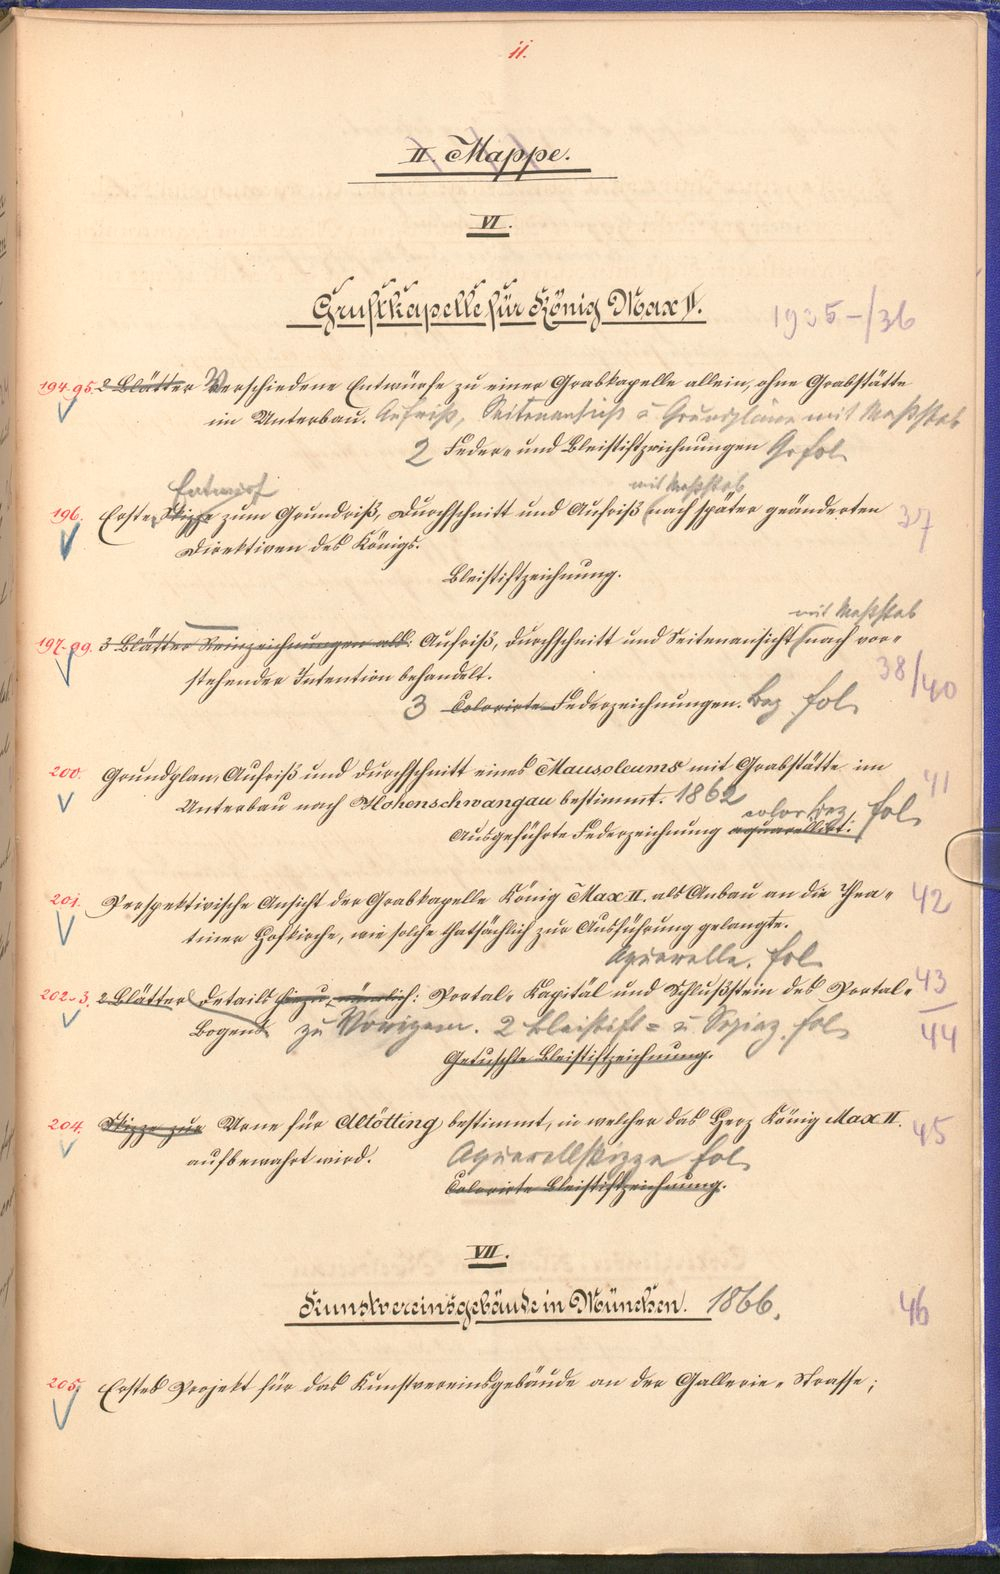 11.
II. Mappe.
VI.
Gruftkapelle für König Max II.
1935-/36
194-95. 2 Blätter Verschiedene Entwürfe zu einer Grabkapelle allein, ohne Grabstätte
im Unterbau. Aufriß, Seitenansicht u Grundpläne mit Maßstab
2 Feder- und Bleistiftzeichnungen Gr fol.
Entwurf
mit Maßstab
196. Erste Skizze zum Grundriß, Durchschnitt und Aufriß (nach später geänderten
37
Direktiven des Königs.
Bleistiftzeichnung.
mit Maßstab
197-99. 3 Blätter Reinzeichnungen als: Aufriß, Durchschnitt und Seitenansicht (nach vor-
stehender Intention behandelt.
38/40
3 Colorirte Federzeichnungen. Bez fol.
200. Grundplan, Aufriß und Durchschnitt eines Mausoleums mit Grabstätte im
41
Unterbau nach Hohenschwangau bestimmt. 1862
color Bez fol.
Ausgeführte Federzeichnung aquarellirt.
201. Perspektivische Ansicht der Grabkapelle König Max II. als Anbau an die Thea-
42
tiner Hofkirche, wie solche thatsächlich zur Ausführung gelangte.
Aquarelle. fol.
202-3. 2 Blätter Details hiezu, nämlich: Portal-Kapitäl und Schlußstein des Portal-
43
44
Bogens zu Vorigem. 2 Bleistift- u Sepiaz. fol.
Getuschte Bleistiftzeichnung.
204. Skizze zur Urne für Altötting bestimmt, in welcher das Herz König Max II.
45
aufbewahrt wird. Aquarellskizze fol.
Colorirte Bleistiftzeichnung.
VII.
Kunstvereinsgebäude in München. 1866.
46
205. Erstes Projekt für das Kunstvereinsgebäude an der Gallerie-Strasse;